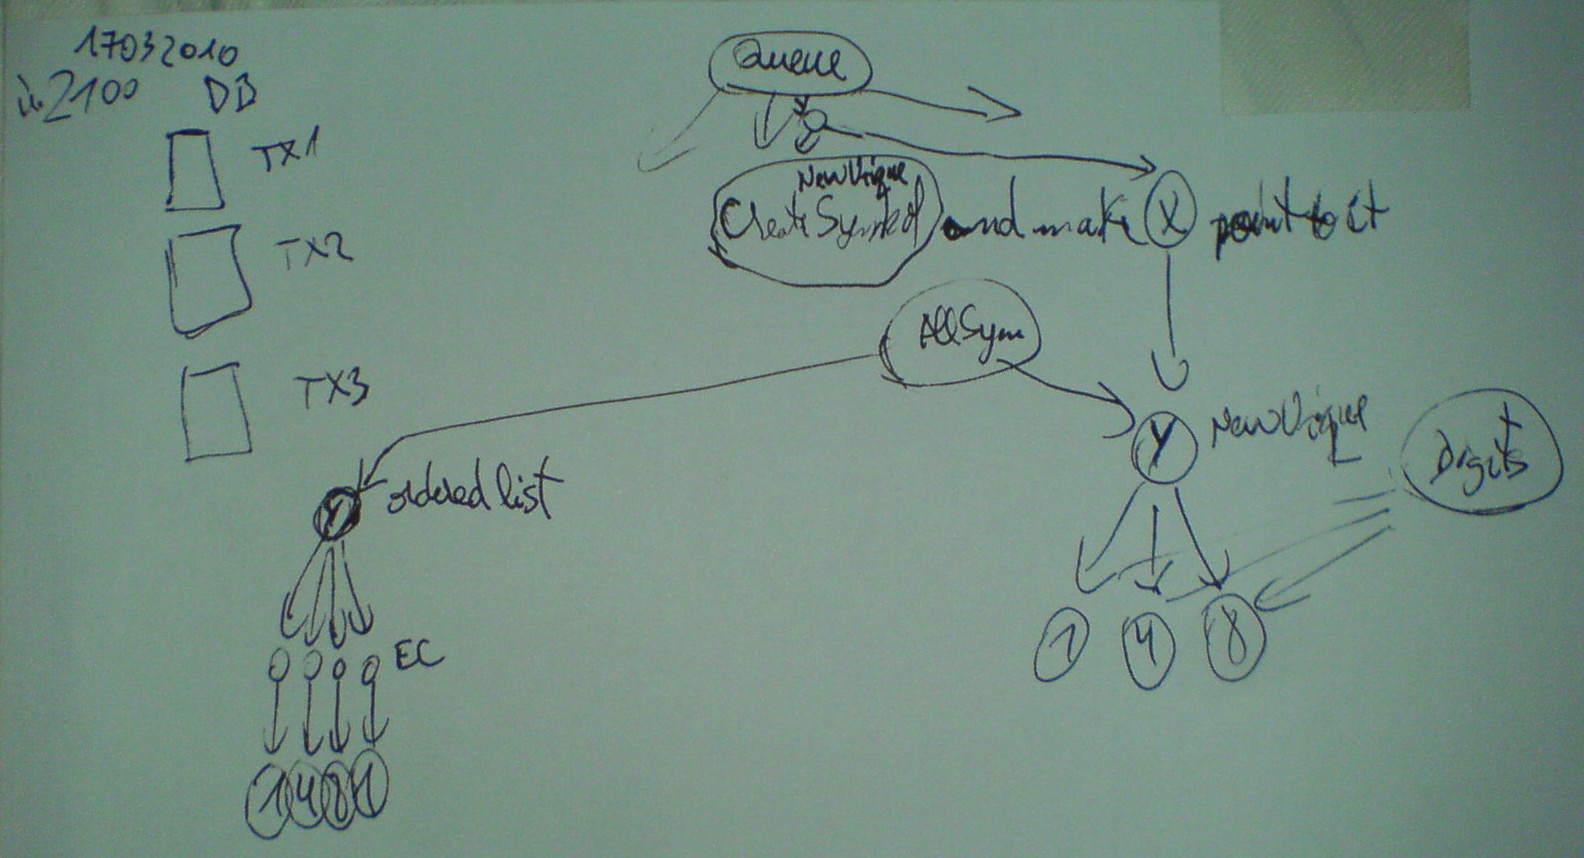 17032010
2100 DB
TX1
TX2
TX3
Queue
NewUnique
Create Symbol and make X point to it
AllSym
Y NewUnique
Digits
Y ordered list
1 4 8
EC
1 4 8 1